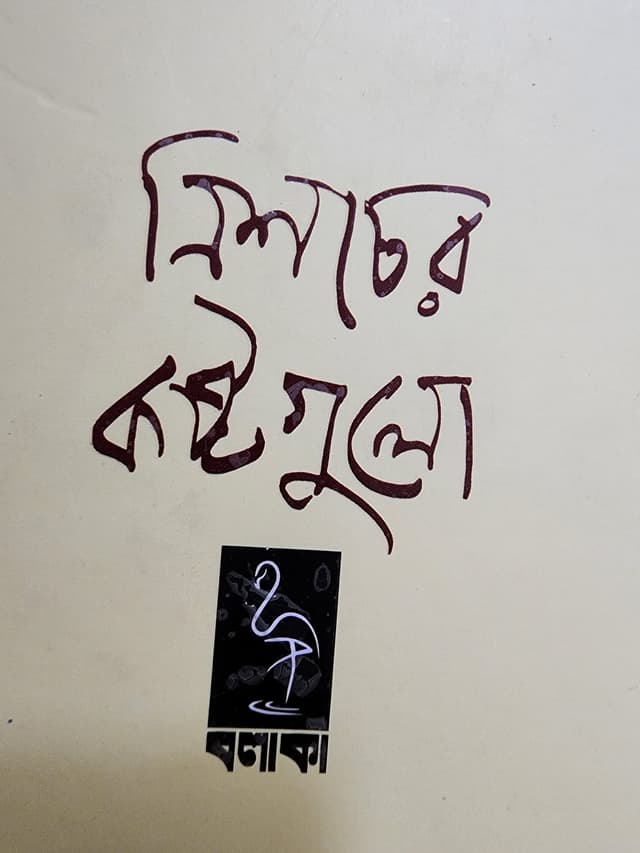 নিশাচর
কষ্টগুলো
বলাকা